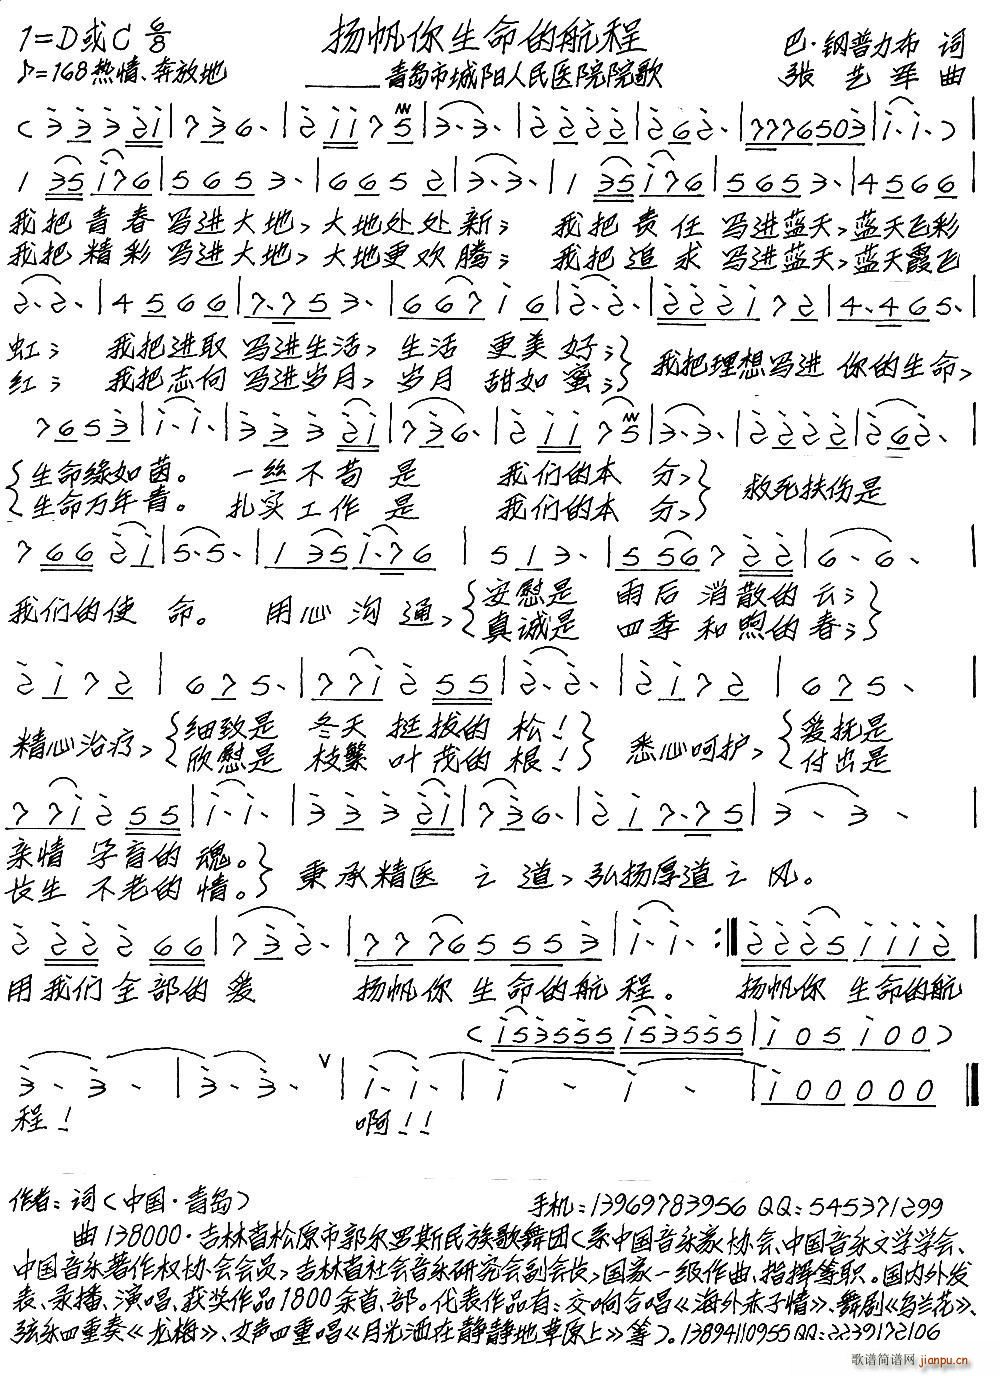 1=D或C 6/8 扬帆你生命的航程 巴·钢普力布 词
♪=168 热情、奔放地 ——青岛市城阳人民医院院歌 张艺军 曲
我把青春写进大地，大地处处新； 我把责任写进蓝天，蓝天飞彩
我把精彩写进大地，大地更欢腾； 我把追求写进蓝天，蓝天霞飞
虹； 我把进取写进生活，生活更美好； 我把理想写进你的生命，
红； 我把志向写进岁月，岁月甜如蜜；
生命缘如茵。 一丝不苟是 我们的本分， 救死扶伤是
生命万年青。 扎实工作是 我们的本分，
我们的使命。 用心沟通， 安慰是 雨后消散的云；
真诚是 四季和煦的春；
精心治疗， 细致是 冬天挺拔的松！ 悉心呵护， 爱抚是
欣慰是 枝繁叶茂的根！ 付出是
亲情孕育的魂。 秉承精医之道，弘扬厚道之风。
长生不老的情。
用我们全部的爱 扬帆你生命的航程。 扬帆你生命的航
程！ 啊！！
作者：词（中国·青岛） 手机：13969783956 QQ：545371299
曲138000·吉林省松原市郭尔罗斯民族歌舞团（系中国音乐家协会、中国音乐文学学会、
中国音乐著作权协会会员，吉林省社会音乐研究会副会长，国家一级作曲、指挥等职。国内外发
表、录播、演唱、获奖作品1800余首、部。代表作品有：交响合唱《海外赤子情》、舞剧《乌兰花》、
弦乐四重奏《龙梅》、女声四重唱《月光洒在静静地草原上》等）。13894110955 QQ：2239172106
歌谱简谱网 jianpu.cn